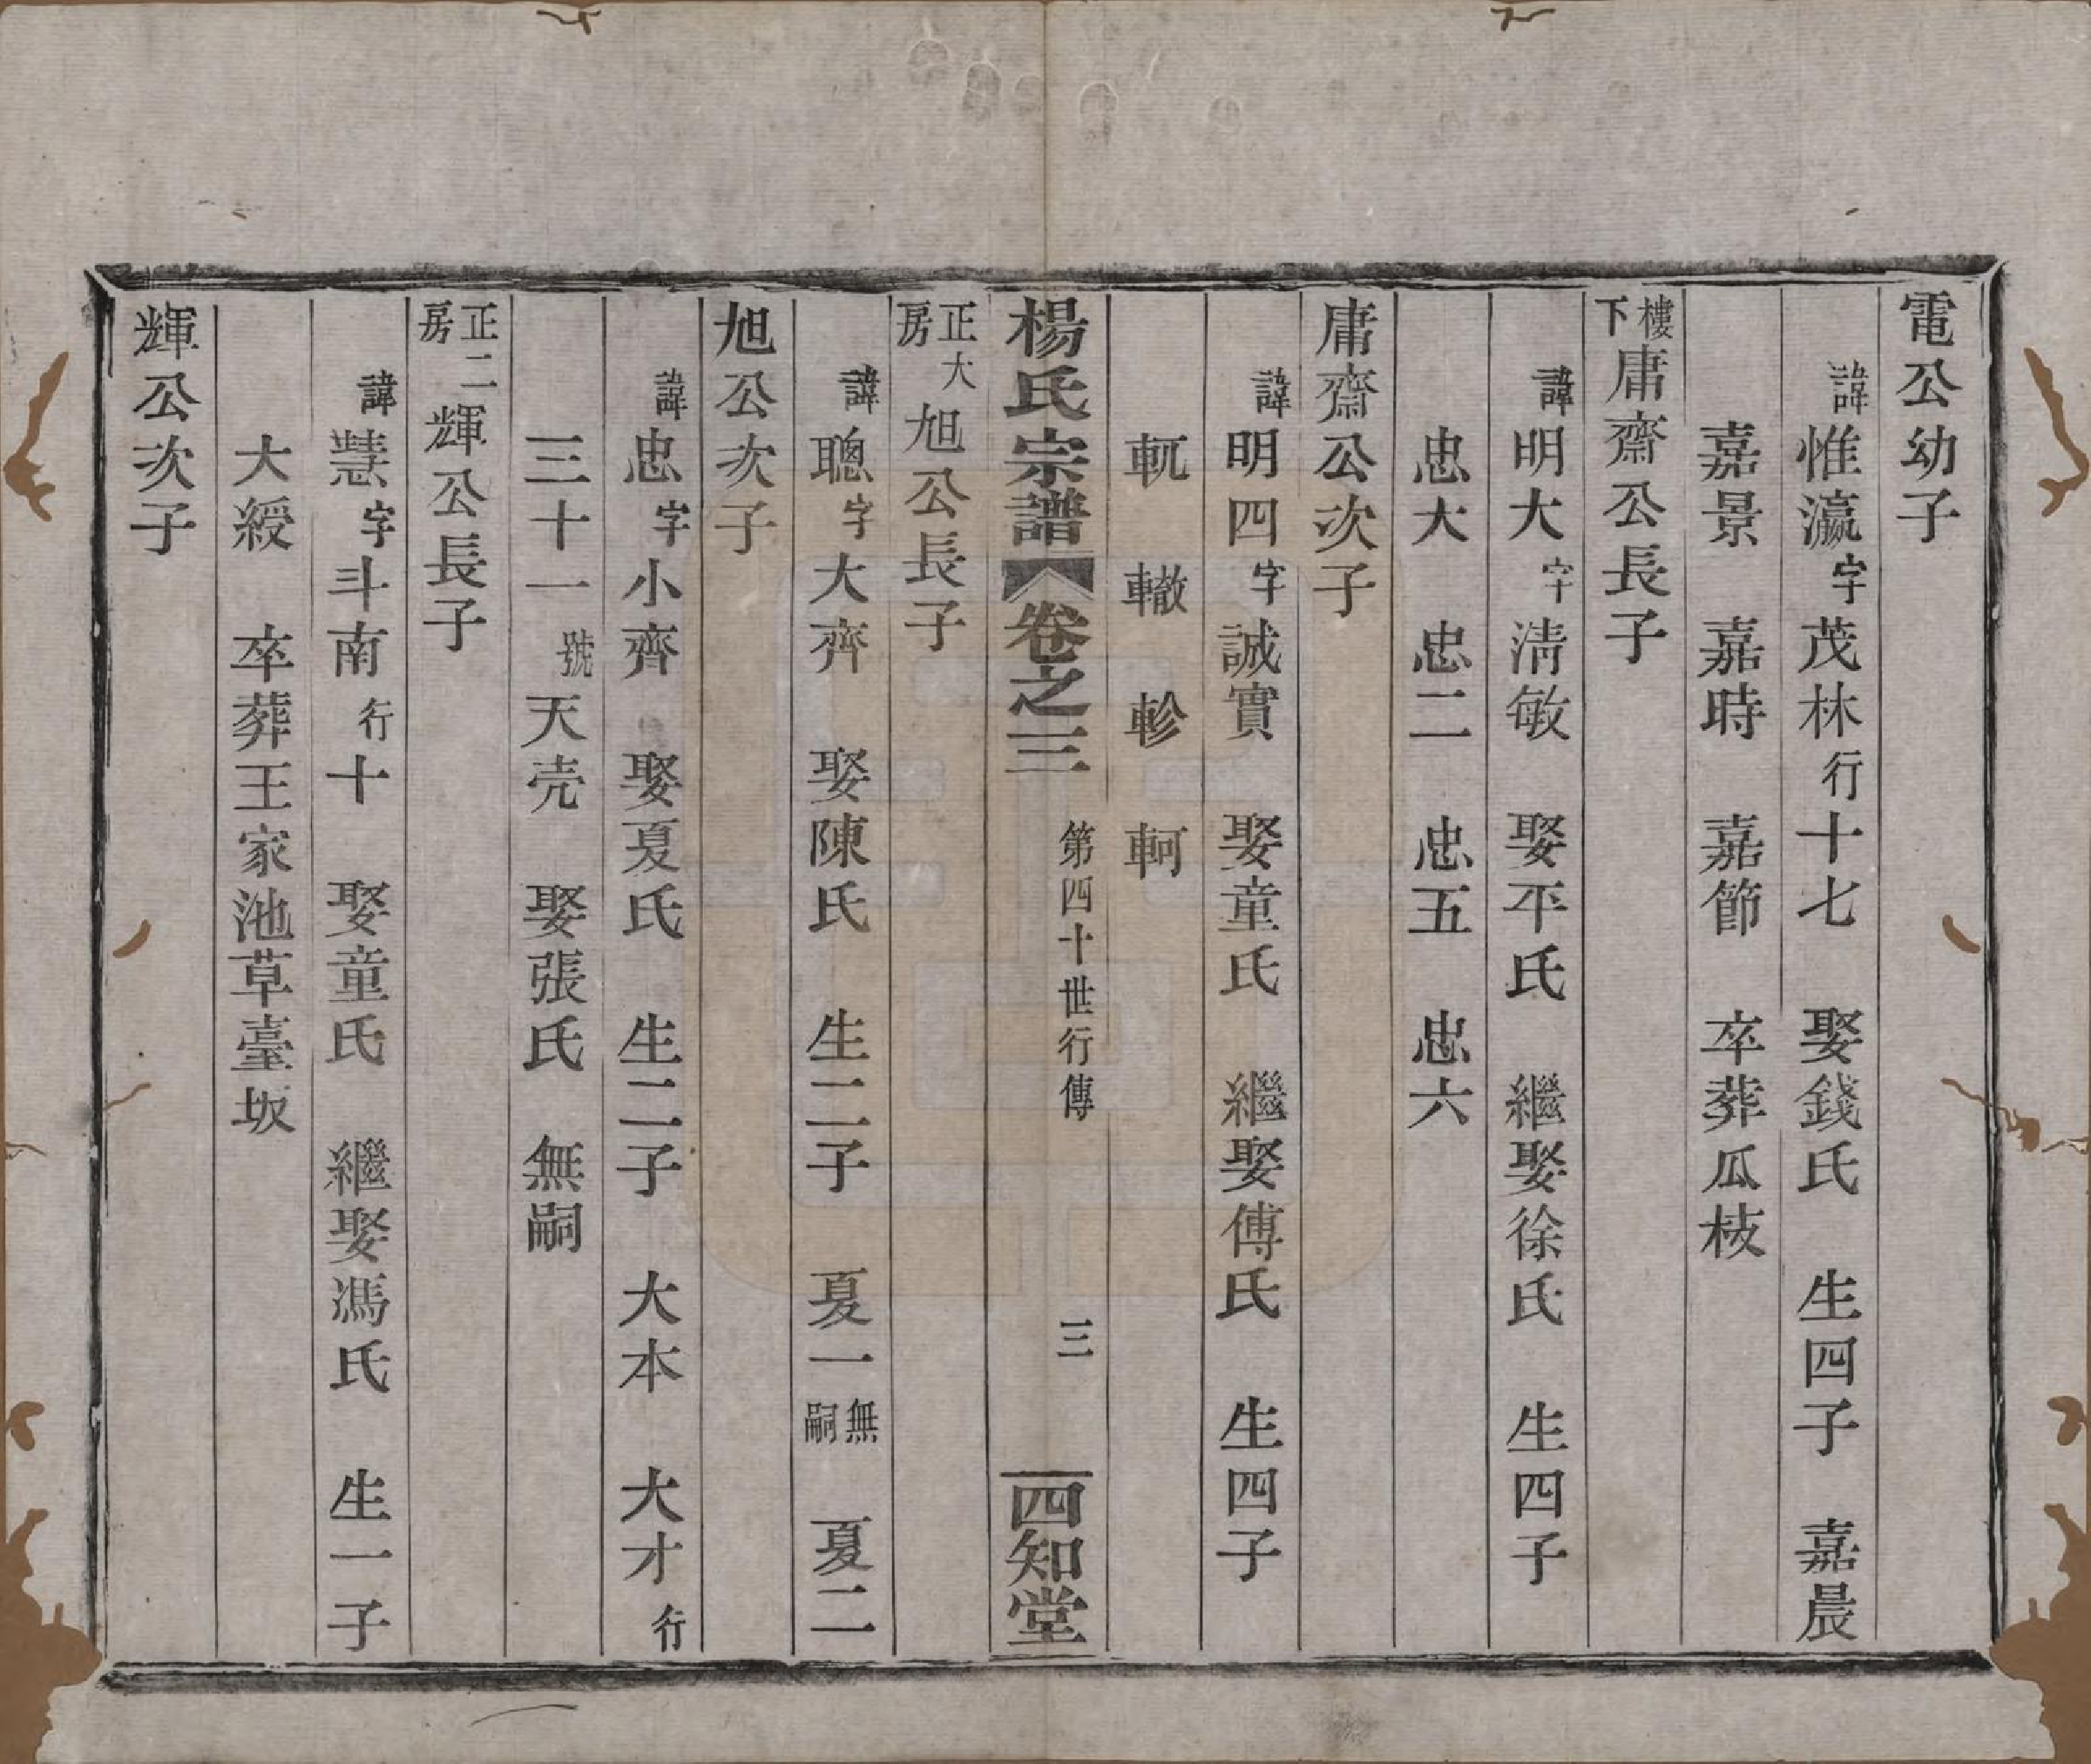 電公幼子
諱惟瀛字茂林行十七　娶錢氏　生四子　嘉晨
嘉景　嘉時　嘉節　卒葬瓜枝
樓下庸齋公長子
諱明大字淸敏　娶平氏　繼娶徐氏　生四子
忠大　忠二　忠五　忠六
庸齋公次子
諱明四字誠實　娶童氏　繼娶傅氏　生四子
軏　轍　軫　軻
楊氏宗譜　卷之三　第四十世行傳　三　四知堂
正大房旭公長子
諱聰字大齊　娶陳氏　生二子　夏一無嗣　夏二
旭公次子
諱忠字小齊　娶夏氏　生二子　大本　大才行
三十一號天壳　娶張氏　無嗣
正二房輝公長子
諱慧字斗南行十　娶童氏　繼娶馮氏　生一子
大綬　卒葬王家池草臺坂
輝公次子